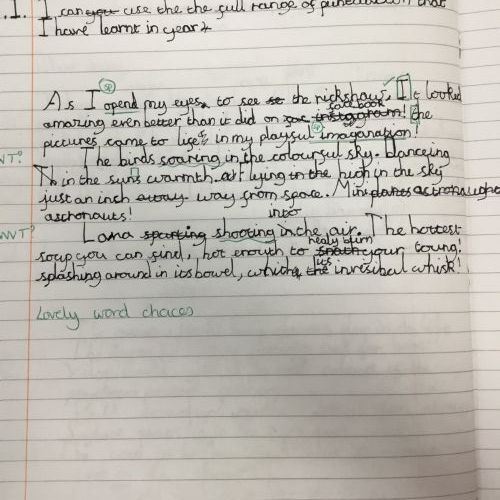 .I. I can use the the full range of punctuation that
I have learnt in year 2
sp
As I opend my eyes, to see the rickshaw. It looked
face book
amazing even better than it did on instagram! the
sp
pictures came to life in my playful imaganation!
NT? The birds soaring in the colourful sky. danceing
in the suns warmth lying the high in the sky
just an inch way from space. Mini astronaught
astronauts!
into
WT? Lana shooting in the air. The hottest
healy burn
soup you can find, hot enouth to your toung!
its
splashing around in its bowel, which invisibal whisk!
Lovely word chaces